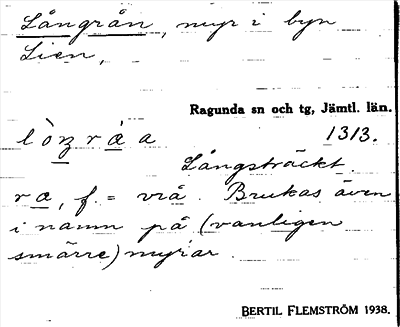 Långrån, myr i byn
Lien,
Ragunda sn och tg, Jämtl. län.
lòŋ rå̀ a 1313.
Långsträckt.
ra, f. = vrå. Brukas även
i namn på (vanligen
smärre) myrar.
BERTIL FLEMSTRÖM 1938.